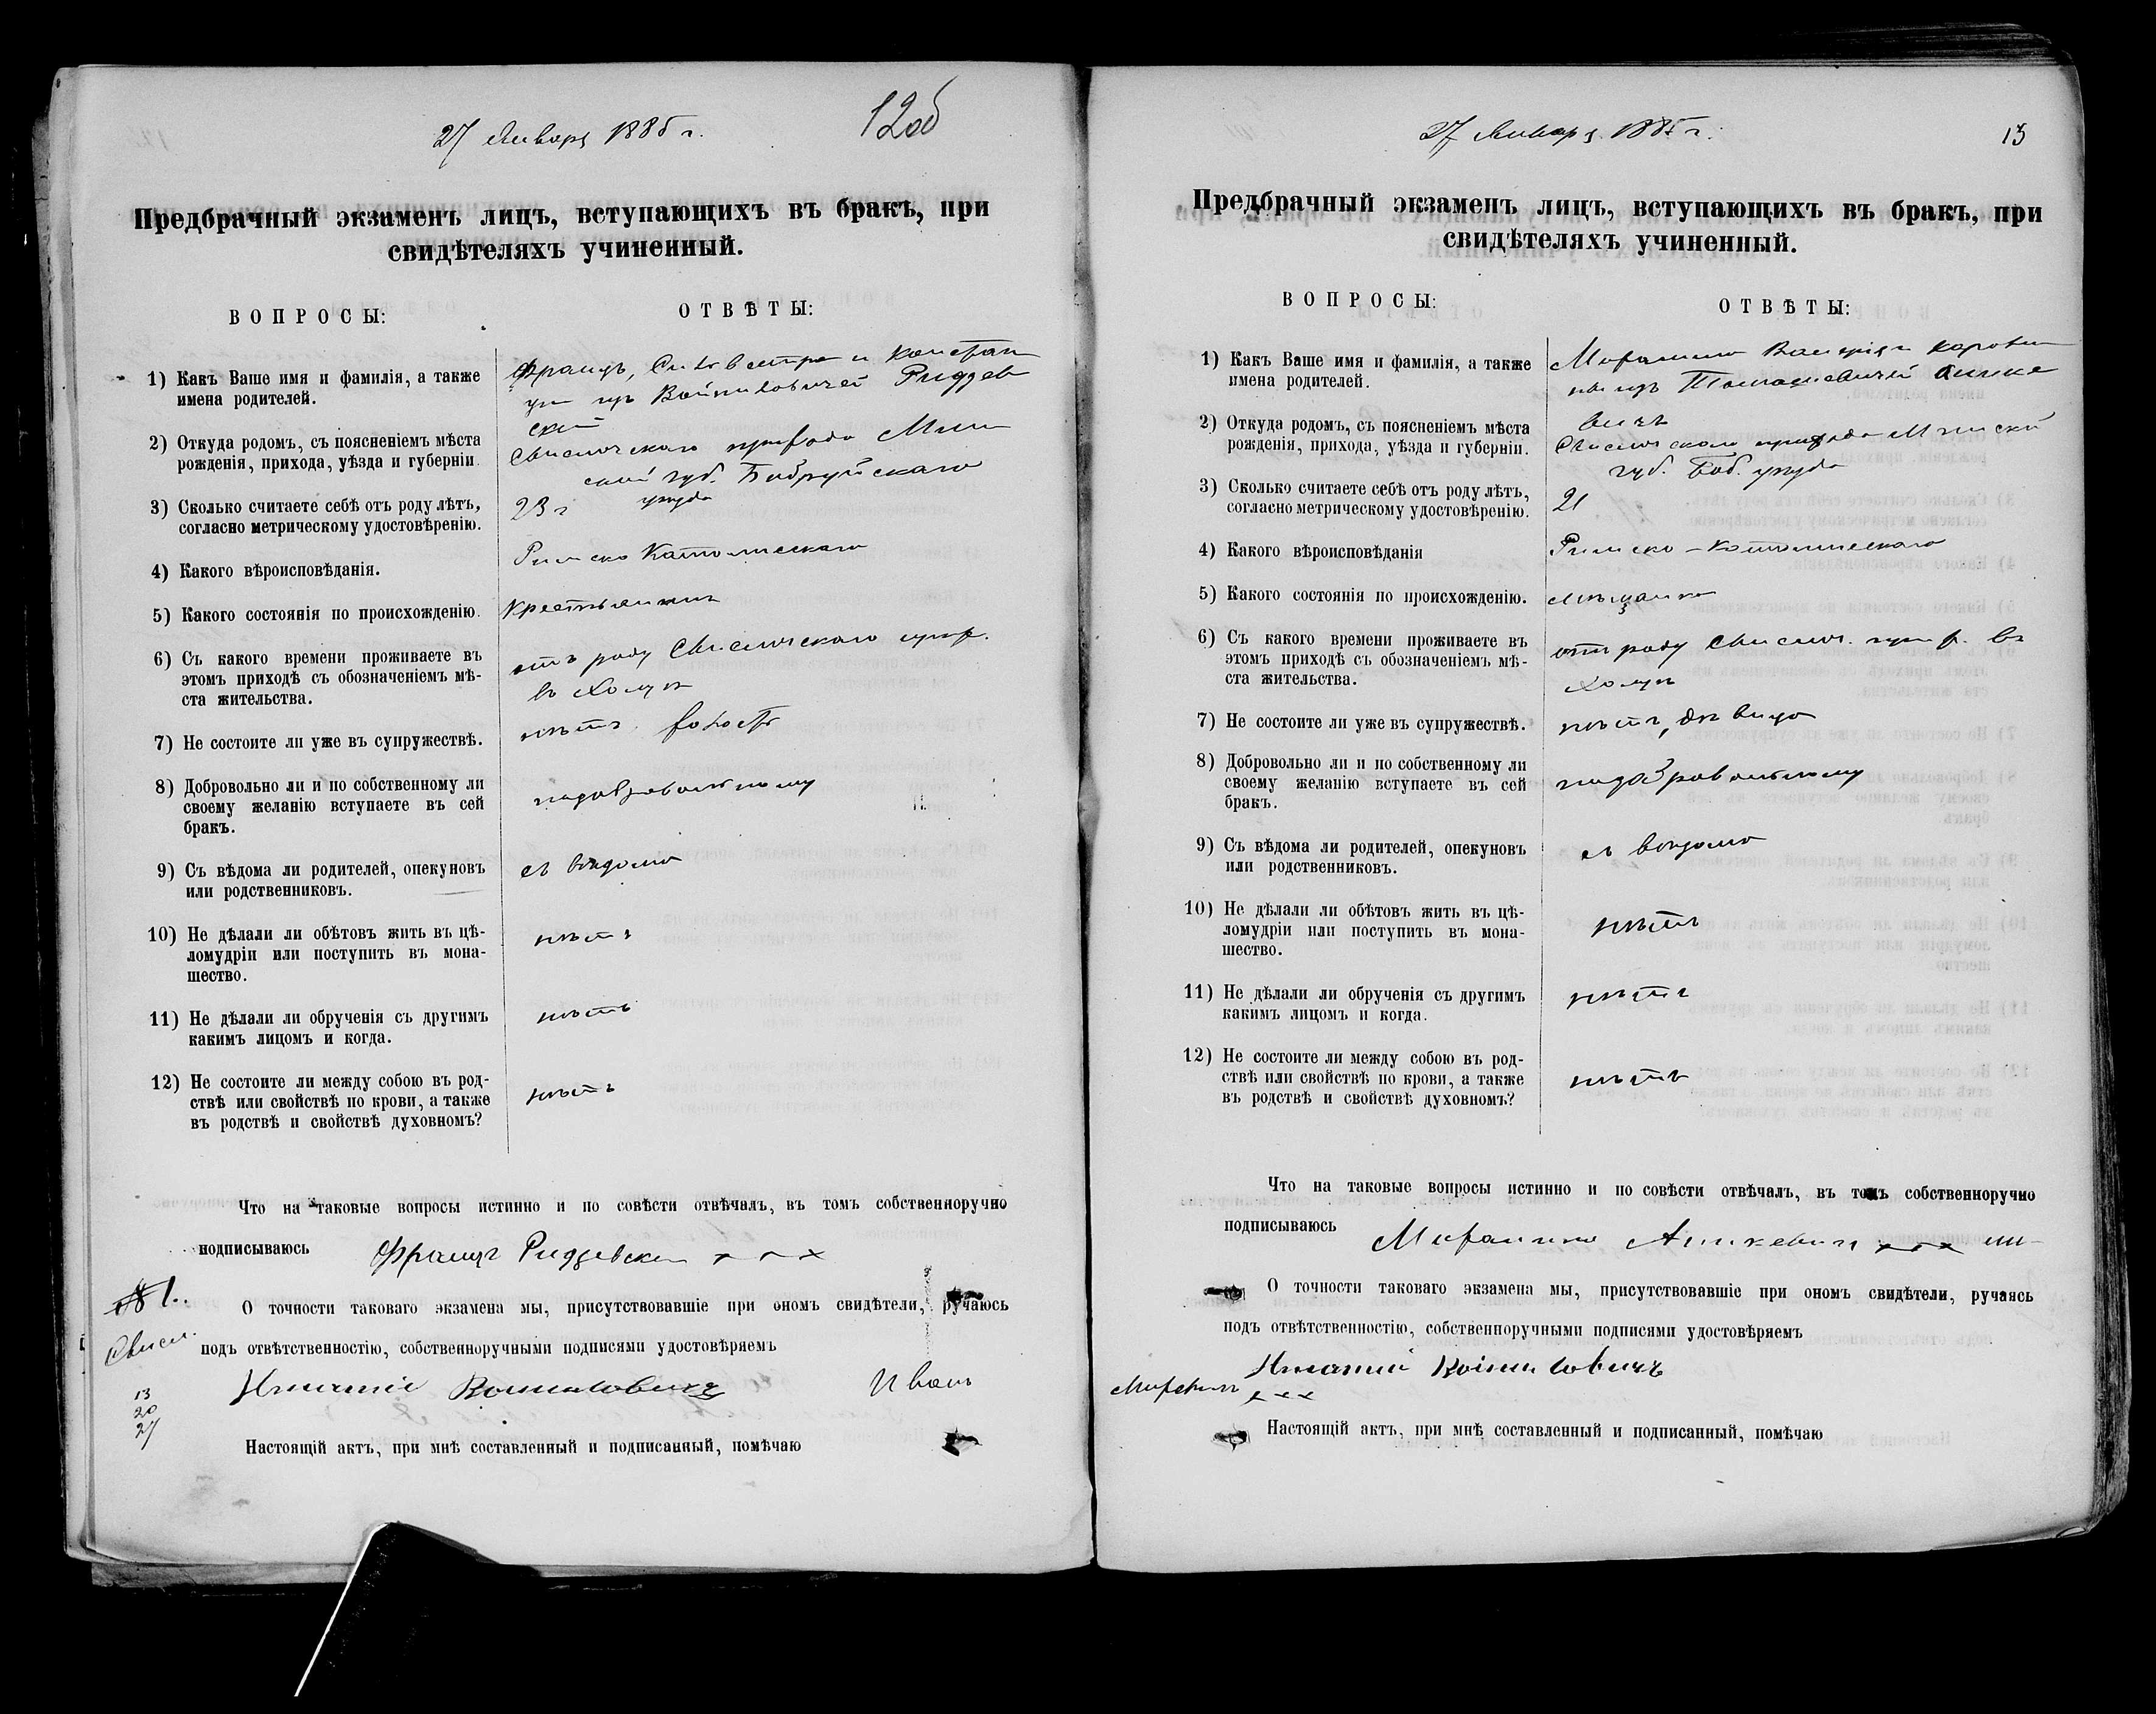 27 Января 1885 г.
12об
Предбрачный экзаменъ лицъ, вступающихъ въ бракъ, при
свидѣтеляхъ учиненный.
ВОПРОСЫ:
ОТВѢТЫ:
1) Какъ Ваше имя и фамилія, а также
имена родителей.
Францъ, Сильвестра и Констан
ціи изъ Войниловичей Ридзев
ский
2) Откуда родомъ, съ поясненіемъ мѣста
рожденія, прихода, уѣзда и губерніи.
Свислочскаго прихода Мин
ской губ. Бобруйскаго
уезда
3) Сколько считаете себѣ отъ роду лѣтъ,
согласно метрическому удостовѣренію.
23 г
4) Какого вѣроисповѣданія.
Римско Католическаго
5) Какого состоянія по происхожденію.
крестьянинъ
6) Съ какого времени проживаете въ
этомъ приходѣ съ обозначеніемъ мѣ-
ста жительства.
отъ роду Свислочскаго прих.
въ
7) Не состоите ли уже въ супружествѣ.
нѣтъ. холостъ
8) Добровольно ли и по собственному ли
своему желанію вступаете въ сей
бракъ.
подобровольному
9) Съ вѣдома ли родителей, опекуновъ
или родственниковъ.
съ вѣдома
10) Не дѣлали ли обѣтовъ жить въ цѣ-
ломудріи или поступить въ мона-
шество.
нѣтъ
11) Не дѣлали ли обрученія съ другимъ
какимъ лицомъ и когда.
нѣтъ
12) Не состоите ли между собою въ род-
ствѣ или свойствѣ по крови, а также
въ родствѣ и свойствѣ духовномъ?
нѣтъ
Что на таковые вопросы истинно и по совѣсти отвѣчалъ, въ томъ собственноручно
подписываюсь Францъ Ридзевски х х х
№ 1.
О точности таковаго экзамена мы, присутствовавшіе при ономъ свидѣтели, ручаюсь
Свисл.
подъ отвѣтственностію, собственноручными подписями удостовѣряемъ
Войниловичъ Иванъ
13
20
27
Настоящій актъ, при мнѣ составленный и подписанный, помѣчаю
27 Января 1885 г.
13
Предбрачный экзаменъ лицъ, вступающихъ въ бракъ, при
свидѣтеляхъ учиненный.
ВОПРОСЫ:
ОТВѢТЫ:
1) Какъ Ваше имя и фамилія, а также
имена родителей.
изъ Томашевичей Аннке
вичъ
2) Откуда родомъ, съ поясненіемъ мѣста
рожденія, прихода, уѣзда и губерніи.
Свислочскаго прихода Минской
губ. Боб. уезда
3) Сколько считаете себѣ отъ роду лѣтъ,
согласно метрическому удостовѣренію.
21
4) Какого вѣроисповѣданія
Римско-Католическаго
5) Какого состоянія по происхожденію.
мѣщанка
6) Съ какого времени проживаете въ
этомъ приходѣ съ обозначеніемъ мѣ-
ста жительства.
отъ роду Свислоч. прих. въ
7) Не состоите ли уже въ супружествѣ.
нѣтъ, дѣвица
8) Добровольно ли и по собственному ли
своему желанію вступаете въ сей
бракъ.
подобровольному
9) Съ вѣдома ли родителей, опекуновъ
или родственниковъ.
съ вѣдома
10) Не дѣлали ли обѣтовъ жить въ цѣ-
ломудріи или поступить въ мона-
шество.
нѣтъ
11) Не дѣлали ли обрученія съ другимъ
какимъ лицомъ и когда.
нѣтъ
12) Не состоите ли между собою въ род-
ствѣ или свойствѣ по крови, а также
въ родствѣ и свойствѣ духовномъ?
нѣтъ
Что на таковые вопросы истинно и по совѣсти отвѣчалъ, въ томъ собственноручно
подписываюсь х х х
О точности таковаго экзамена мы, присутствовавшіе при ономъ свидѣтели, ручаясь
подъ отвѣтственностію, собственноручными подписями удостовѣряемъ
Войниловичъ
х х х
Настоящій актъ, при мнѣ составленный и подписанный, помѣчаю